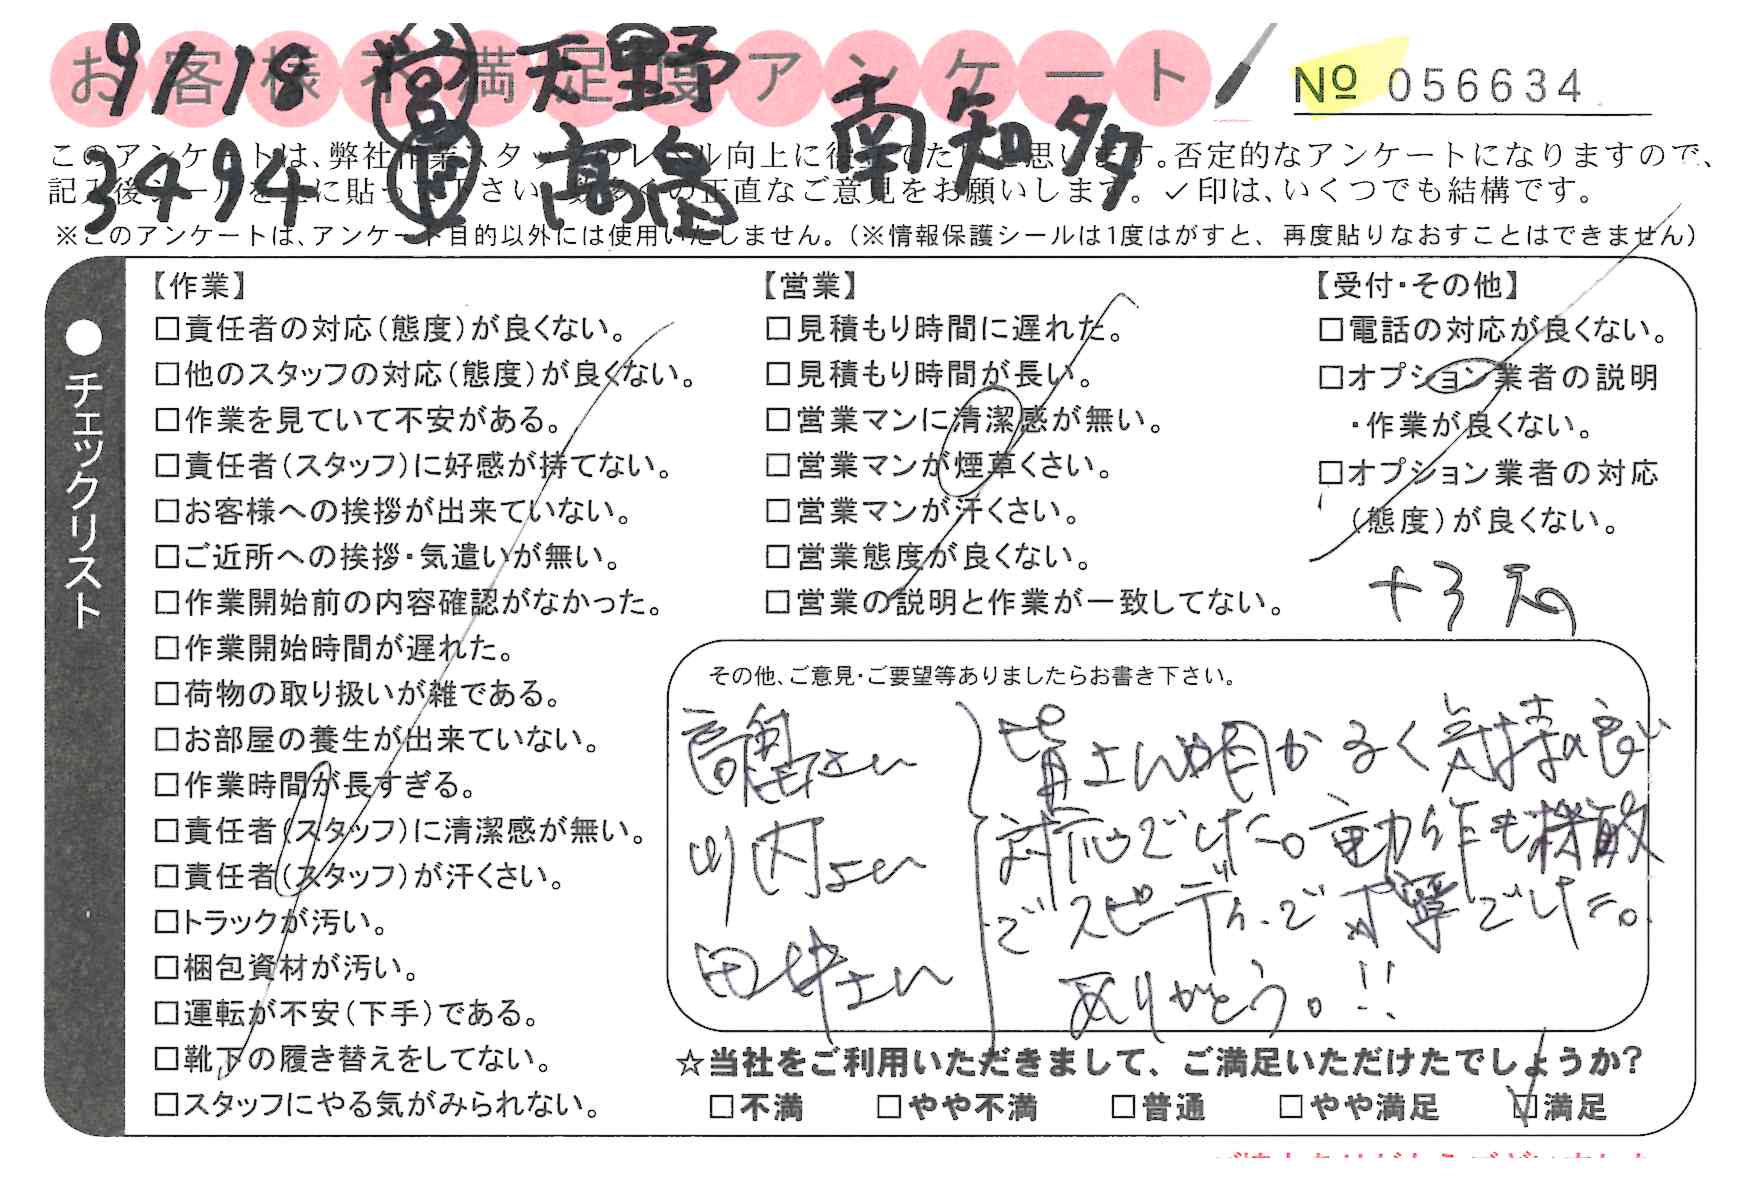 お客様不満足度アンケート
№ 056634
9/18 営 天野 南知多
3494 高畠
このアンケートは、弊社作業スタッフのレベル向上に役立てたいと思います。否定的なアンケートになりますので、
記入後シールを上に貼って下さい。数多くの正直なご意見をお願いします。✓印は、いくつでも結構です。
※このアンケートは、アンケート目的以外には使用いたしません。(※情報保護シールは1度はがすと、再度貼りなおすことはできません)
●チェックリスト
【作業】
□責任者の対応(態度)が良くない。
□他のスタッフの対応(態度)が良くない。
□作業を見ていて不安がある。
□責任者(スタッフ)に好感が持てない。
□お客様への挨拶が出来ていない。
□ご近所への挨拶・気遣いが無い。
□作業開始前の内容確認がなかった。
□作業開始時間が遅れた。
□荷物の取り扱いが雑である。
□お部屋の養生が出来ていない。
□作業時間が長すぎる。
□責任者(スタッフ)に清潔感が無い。
□責任者(スタッフ)が汗くさい。
□トラックが汚い。
□梱包資材が汚い。
□運転が不安(下手)である。
□靴下の履き替えをしてない。
□スタッフにやる気がみられない。
【営業】
□見積もり時間に遅れた。
□見積もり時間が長い。
□営業マンに清潔感が無い。
□営業マンが煙草くさい。
□営業マンが汗くさい。
□営業態度が良くない。
□営業の説明と作業が一致してない。
【受付・その他】
□電話の対応が良くない。
□オプション業者の説明
・作業が良くない。
□オプション業者の対応
(態度)が良くない。
その他、ご意見・ご要望等ありましたらお書き下さい。
川内さん
田中さん
皆さん明かるく気持の良い
対応でした。動作も機敏
でスピーディで丁寧でした。
ありがとう。!!
☆当社をご利用いただきまして、ご満足いただけたでしょうか?
□不満 □やや不満 □普通 □やや満足 ☑満足